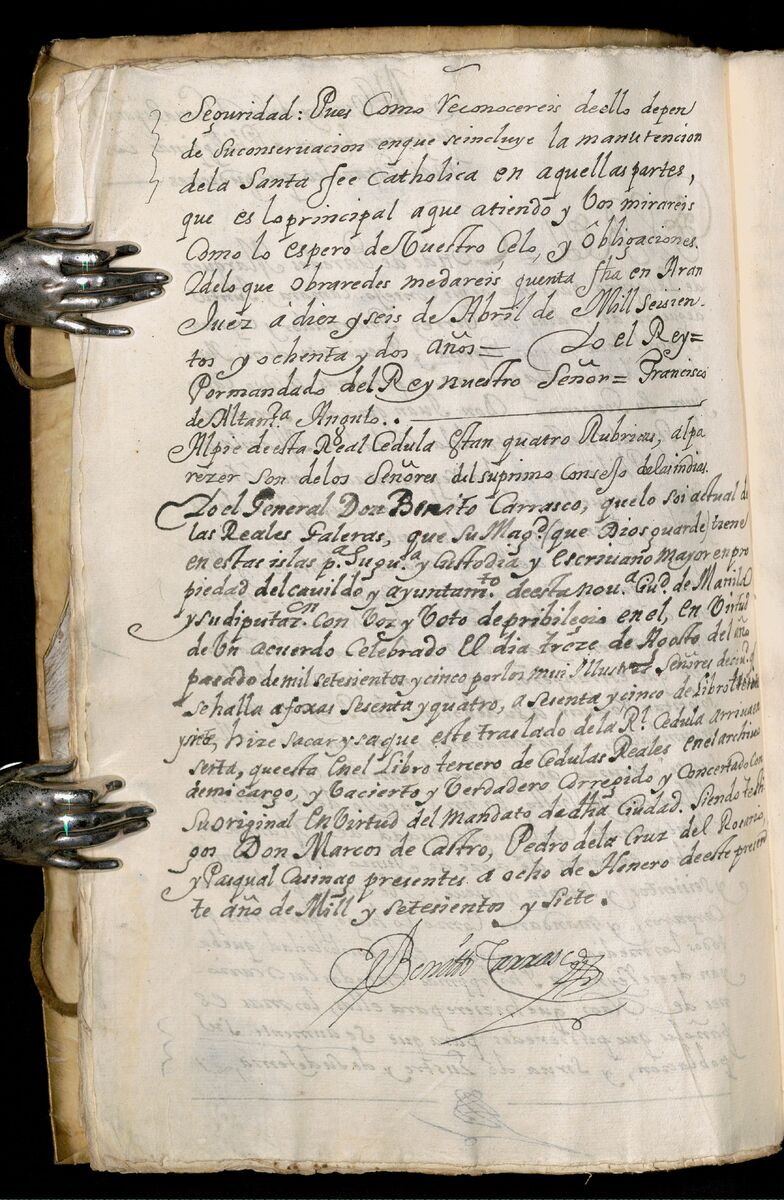 Seguridad: Pues Como Reconocereis deello depen
de suconservacion enque seincluye la manutencion
dela Santa ffee Catholica en aquellas partes,
que es loprincipal aque atiendo y Vos mirareis
Como lo espero de Vuestro Celo, y Obligaciones.
Ydelo que obraredes medareis quenta fha en Aran
Juez á diez yseis de Abril de Mill seisien-
tos y ochenta y dos años= Yo el Rey=
Pormandado del Rey nuestro Señor= Francisco
de Altanra Angulo..
Alpie deesta Real Cedula Estan quatro Rubricas, alpa
rezer son delos Señores del suprimo Consejo delas indias.
Yo el General Don Benito Carrasco, quelo soi actual de
las Reales Galeras, que su Magd. (que Dios guarde) tiene
en estas islas pa. Sugura. y Custodia y Escrivano mayor en pro
piedad del cavildo y ayuntamto. deesta nova. Ciud. de Manila
y sudiputazn. con Voz y Voto depribilegio en el, En Virtud
de Un acuerdo Celebrado El dia treze de Agosto del año
pasado de mil setesientos y cinco porlos mui Illustres Señores
sehalla afoxas sesenta yquatro, a sesenta y cinco de Libro
hize sacar y saque este traslado dela Rl. Cedula arriva in
serta, queesta Enel Libro tercero de Cedulas Reales enel archivo
demi cargo, y Vacierto y Verdadero Corregido y Concertado Con
su original En Virtud del mandato de dha Ciudad. Siendo testi
gos Don Marcos de Castro, Pedro dela Cruz del Rosario,
y Pasqual Casinag presentes a ocho de Henero deeste presen
te año de Mill y setesientos y siete.
Benitto Carrasco